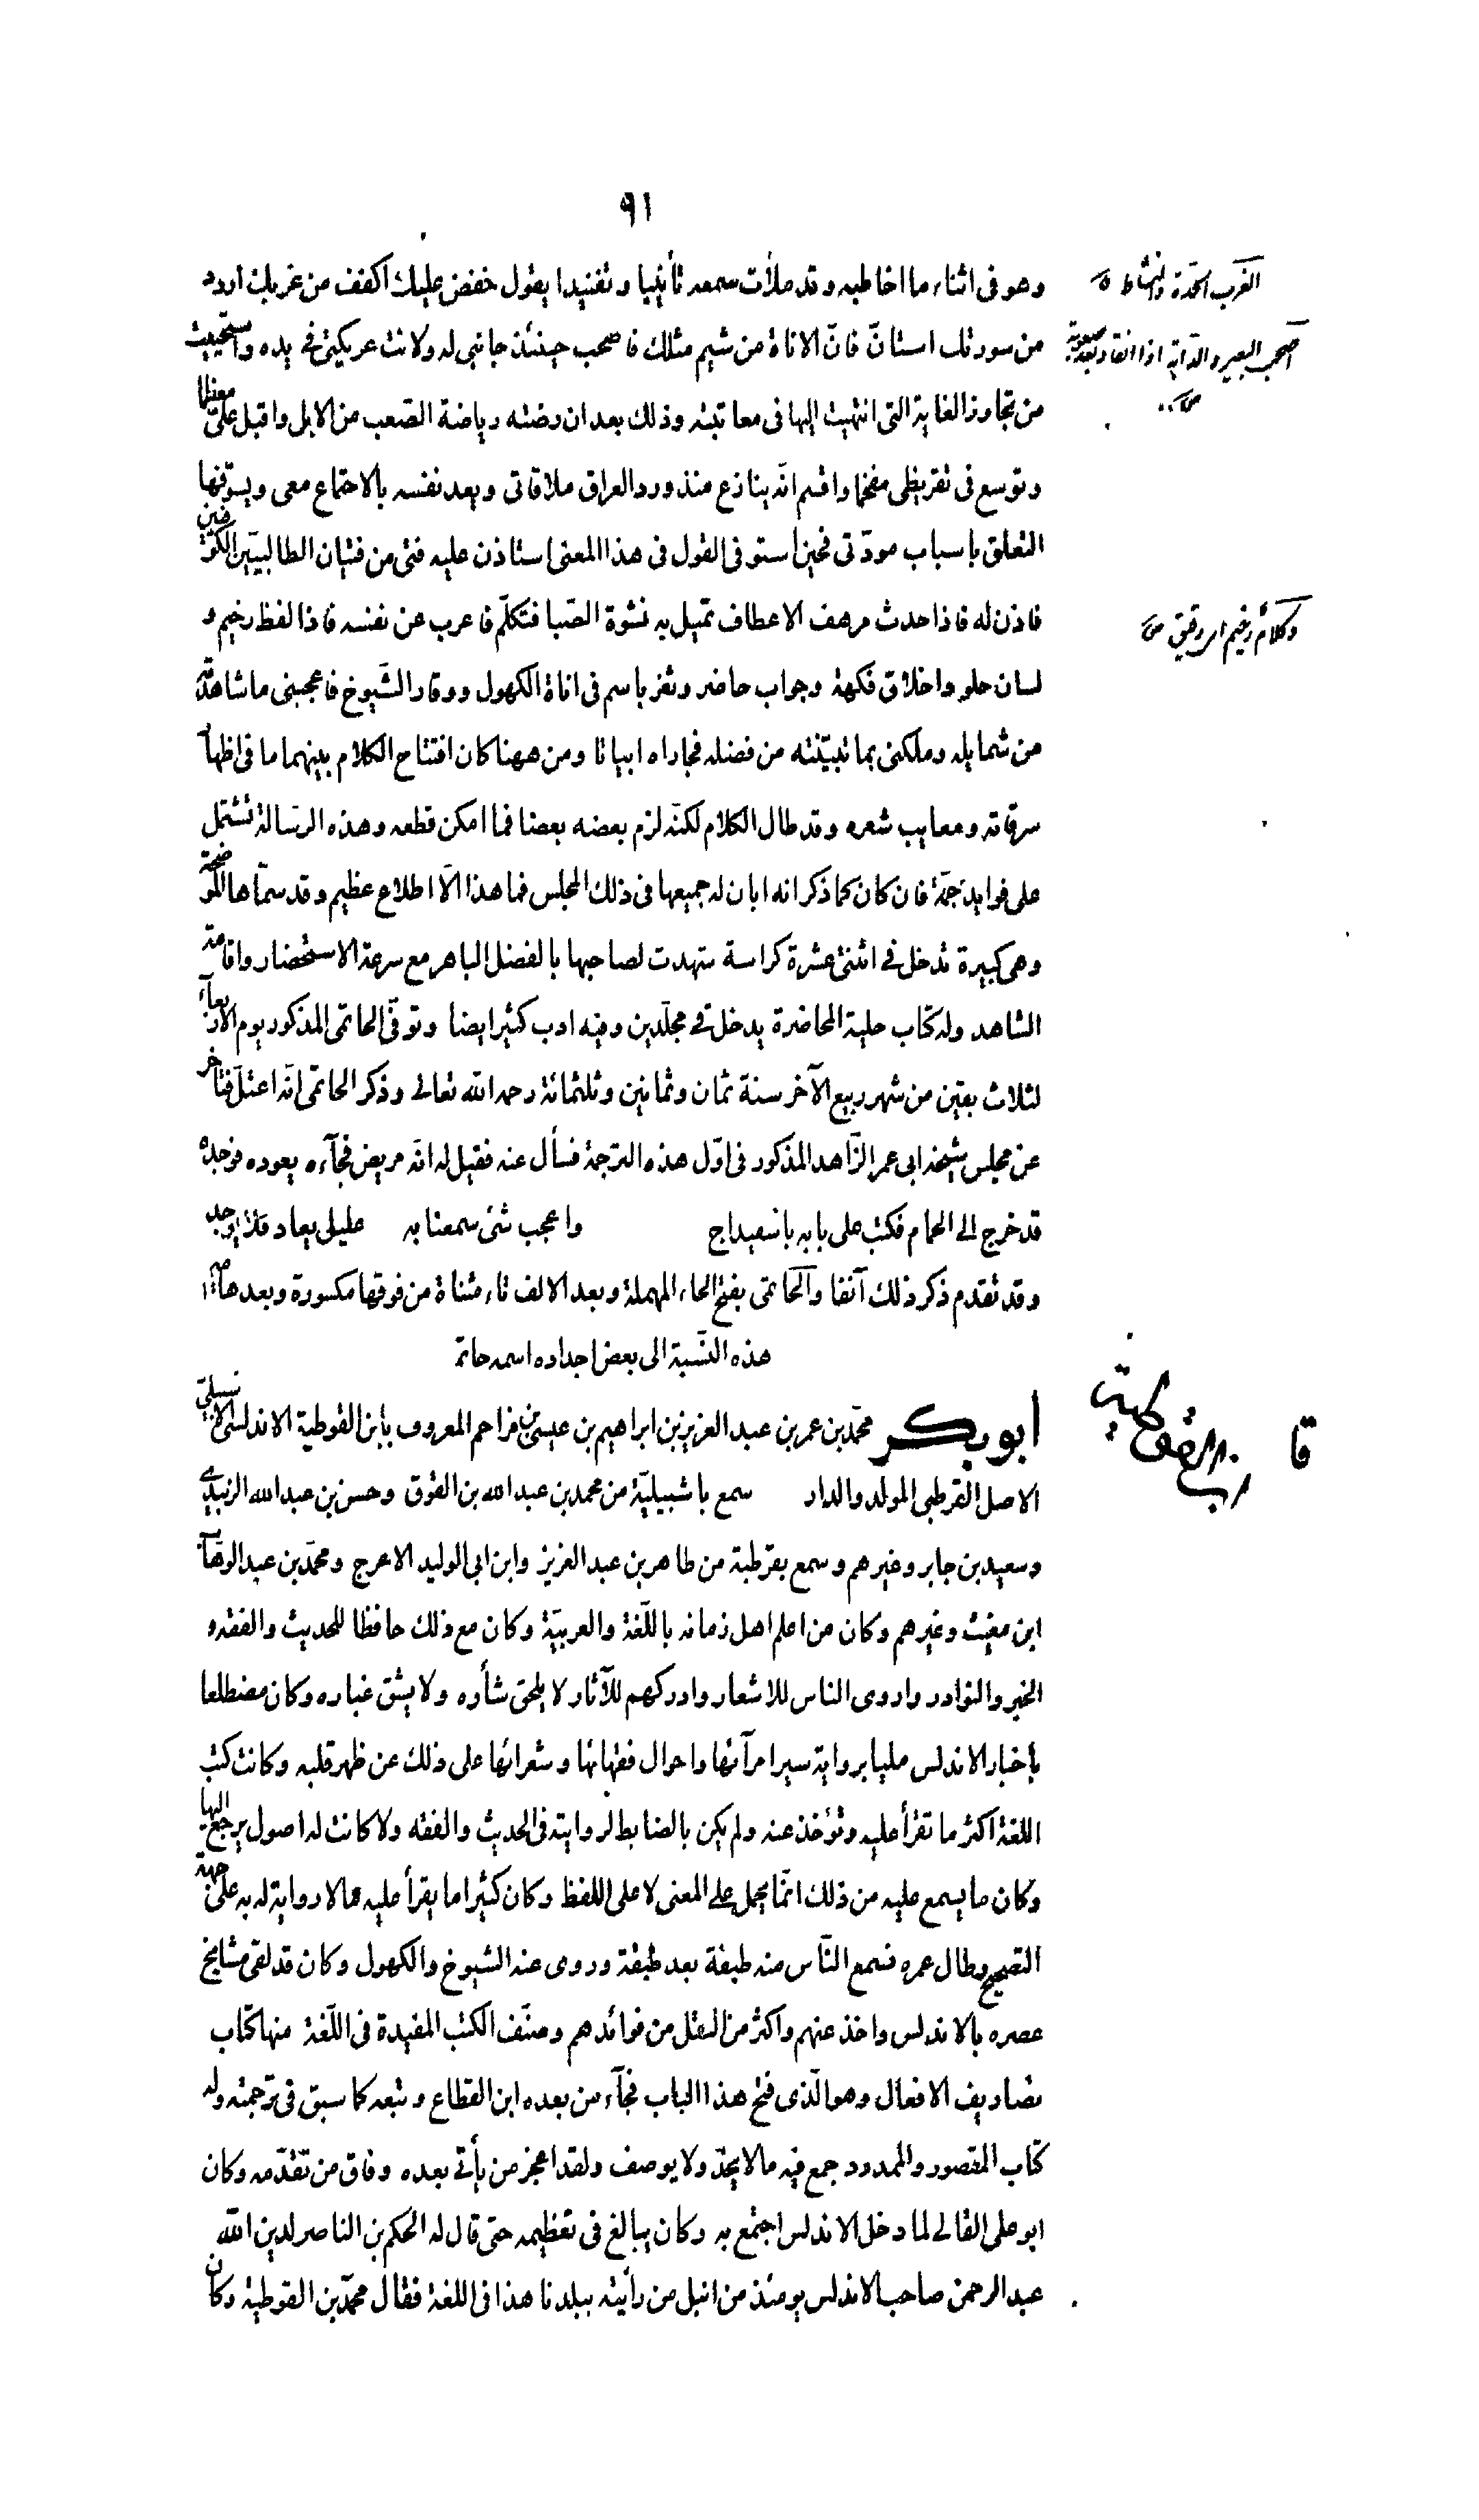 ٩١
وهو فى اثناء ما اخاطبه وقد ملأت سمعه تأنيبا وتفنيدا يقول خفض عليك اكفف من غربك اردد
من سورتك استأنّ فانّ الاناة من شيم مثلك فاصحب حينئذ جانبى له ولانت عريكتى فى يده واستحييت
من تجاوز الغاية التى انتهيت اليها فى معاتبته وذلك بعد ان رضته رياضة الصّعب من الابل واقبل علىّ معظما
وتوسع فى تقريظى مفخما واقسم انّه ينازع منذ ورد العراق ملاقاتى ويعد نفسه بالاجتماع معى ويسوّفها
التعلق باسباب مودّتى فحين استوفى القول فى هذا المعنى استاذن عليه فتى من فتيان الطالبيّين الكوفيين
فاذن له فاذا حدث مرهف الاعطاف تميل به نشوة الصّبا فتكلّم فاعرب عن نفسه فاذا لفظ رخيم و
لسان حلو واخلاق فكهة وجواب حاضر وثغر باسم فى اناة الكهول ووقار الشّيوخ فاعجبنى ما شاهدته
من شمايله وملكنى بما تبيّنته من فضله فجاراه ابياتا ومن ههنا كان افتتاح الكلام بينهما ما فى اظهار
سرقاته ومعايب شعره وقد طال الكلام لكنّه لزم بعضه بعضا فما امكن قطعه وهذه الرّسالة تشتمل
على فوايد جمّة فان كان كما ذكر انه ابان له جميعها فى ذلك المجلس فما هذا الّا اطلاع عظيم وقد سمّاها الموضحة
وهى كبيرة تدخل فى اثنتى عشرة كراسة شهدت لصاحبها بالفضل الباهر مع سرعة الاستحضار واقامة
الشاهد وله كتاب حلية المحاضرة يدخل فى مجلّدين وفيه ادب كثير ايضا وتوفّى الحاتمى المذكور يوم الاربعآء
لثلاث بقين من شهر ربيع الآخر سنة ثمان وثمانين وثلثمائة رحمه الله تعالى وذكر الحاتمى انّه اعتلّ فتاخر
عن مجلس شيخه ابى عمر الزّاهد المذكور فى اوّل هذه الترجمة فسأل عنه فقيل له انّه مريض فجآءه يعوده فوجده
قد خرج الى الحمام فكتب على بابه باسفيداج واعجب شئ سمعنا به عليل يعاد فلا يوجد
وقد تقدم ذكر ذلك آنفا والحاتمى بفتح الحاء المهملة وبعد الالف تاء مثناة من فوقها مكسورة وبعدها ميم
هذه النّسبة الى بعض اجداده اسمه حاتم
ابو بكر محمّد بن عمر بن عبد العزيز بن ابراهيم بن عيسى بن مزاحم المعروف بأبن القوطية الاندلسى الاشبيلى
الاصل القرطبى المولد والدار سمع باشبيليّة من محمد بن عبد الله بن القوق وحسن بن عبد الله الزبيدى
وسعيد بن جابر وغيرهم وسمع بقرطبة من طاهر بن عبد العزيز وابن ابى الوليد الاعرج ومحمّد بن عبد الوهّاب
ابن مغيث وغيرهم وكان من اعلم اهل زمانه باللّغة والعربيّة وكان مع ذلك حافظا للحديث والفقه و
الخبر والنوادر واروى الناس للاشعار وادركهم للآثار لا يلحق شأوه ولا يشق غباره وكان مضطلعا
باخبار الاندلس مليا برواية سير امرآئها واحوال فقهائها وشعرائها على ذلك عن ظهر قلبه وكانت كتب
اللغة اكثر ما تقرأ عليه وتؤخذ عنه ولم يكن بالضابط لروايته فى الحديث والفقه ولا كانت له اصول يرجع اليها
وكان ما يسمع عليه من ذلك انّما يحمل على المعنى لا على اللفظ وكان كثيرا ما يقرأ عليه مالا رواية له به على جهة
التصحيح وطال عمره فسمع النّاس منه طبقة بعد طبقة وروى عنه الشيوخ والكهول وكان قد لقى مشايخ
عصره بالاندلس واخذ عنهم واكثر من النقل من فوائدهم وصنّف الكتب المفيدة فى اللّغة منها كتاب
تصاريف الافعال وهو الّذى فتح هذا الباب فجآء من بعده ابن القطاع وتبعه كما سبق فى ترجمته وله
كتاب المقصور والممدود جمع فيه مالا يحدّ ولا يوصف ولقد اعجز من يأتى بعده وفاق من تقدّمه وكان
ابو على القالى لما دخل الاندلس اجتمع به وكان يبالغ فى تعظيمه حتى قال له الحكم بن الناصر لدين الله
عبد الرحمن صاحب الاندلس يومئذ من انبل من رأيته ببلدنا هذا فى اللغة فقال محمّد بن القوطية وكان
الغرب الحدّة والنشاط ص
اصحب البعير والدّابة اذا انقاد بعد صعوبة
ص
وكلام رخيم اى رقيق ص
ابن القوطية
قا